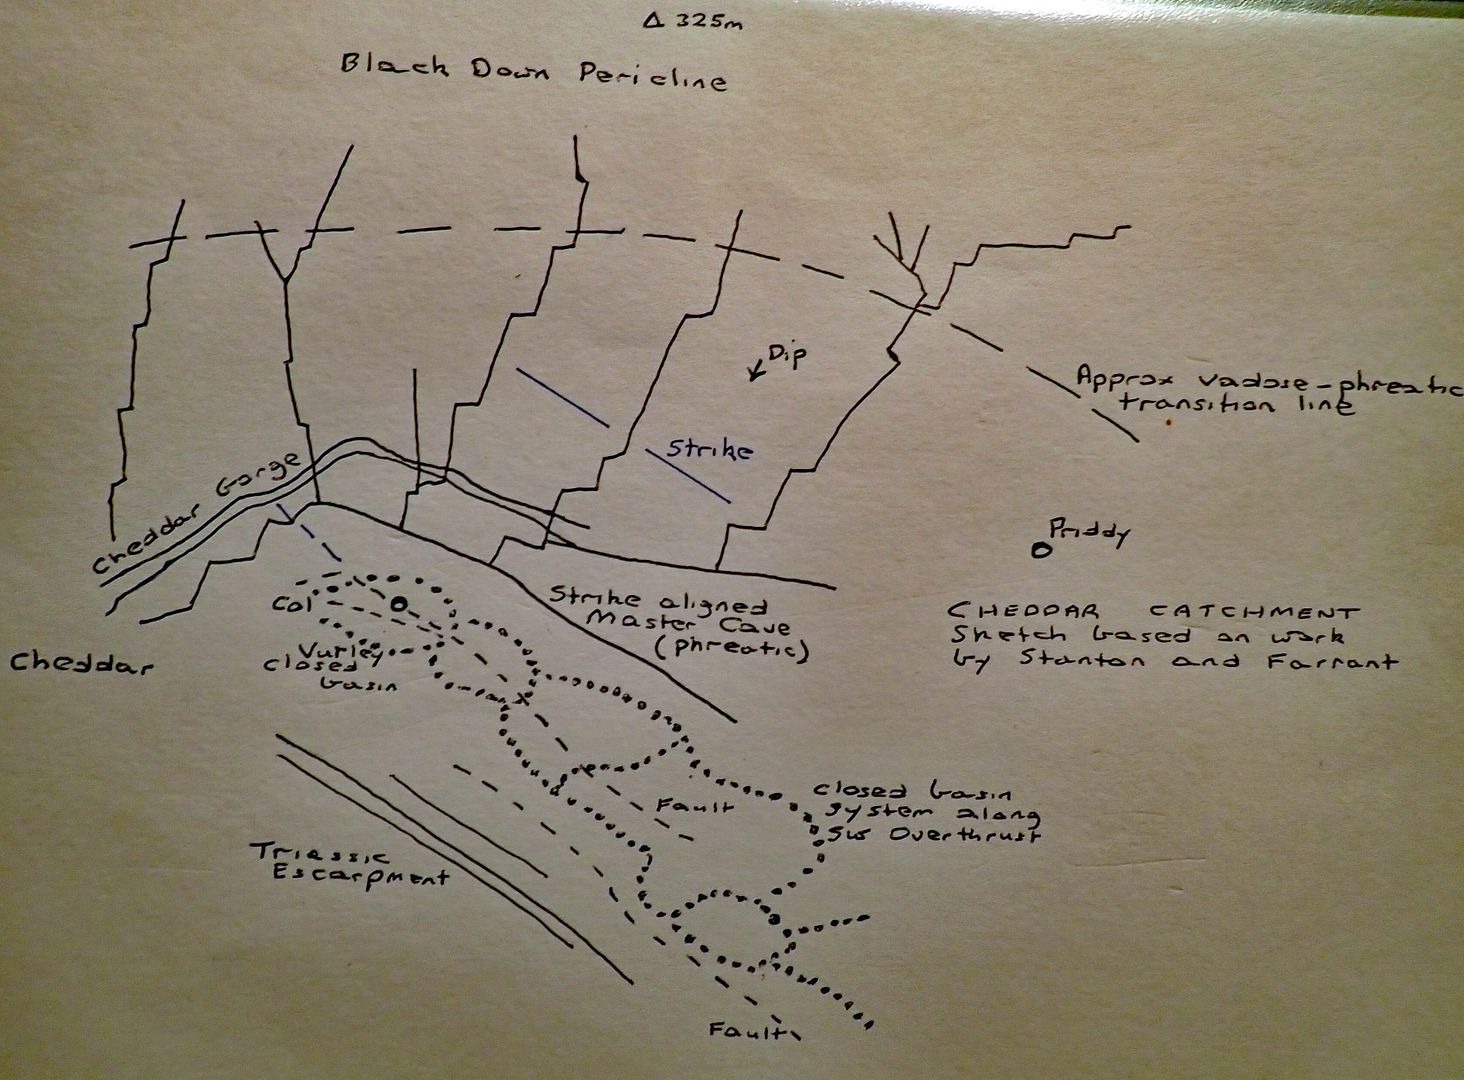 Δ 325m
Black Down Pericline
Dip
Approx vadose-phreatic
transition line
Strike
Cheddar Gorge
Priddy
Strike aligned
Master Cave
(phreatic)
CHEDDAR CATCHMENT
Sketch based on work
by Stanton and Farrant
Col
Cheddar
Vurley
closed
basin
closed basin
system along
SW Overthrust
Fault
Triassic
Escarpment
Fault